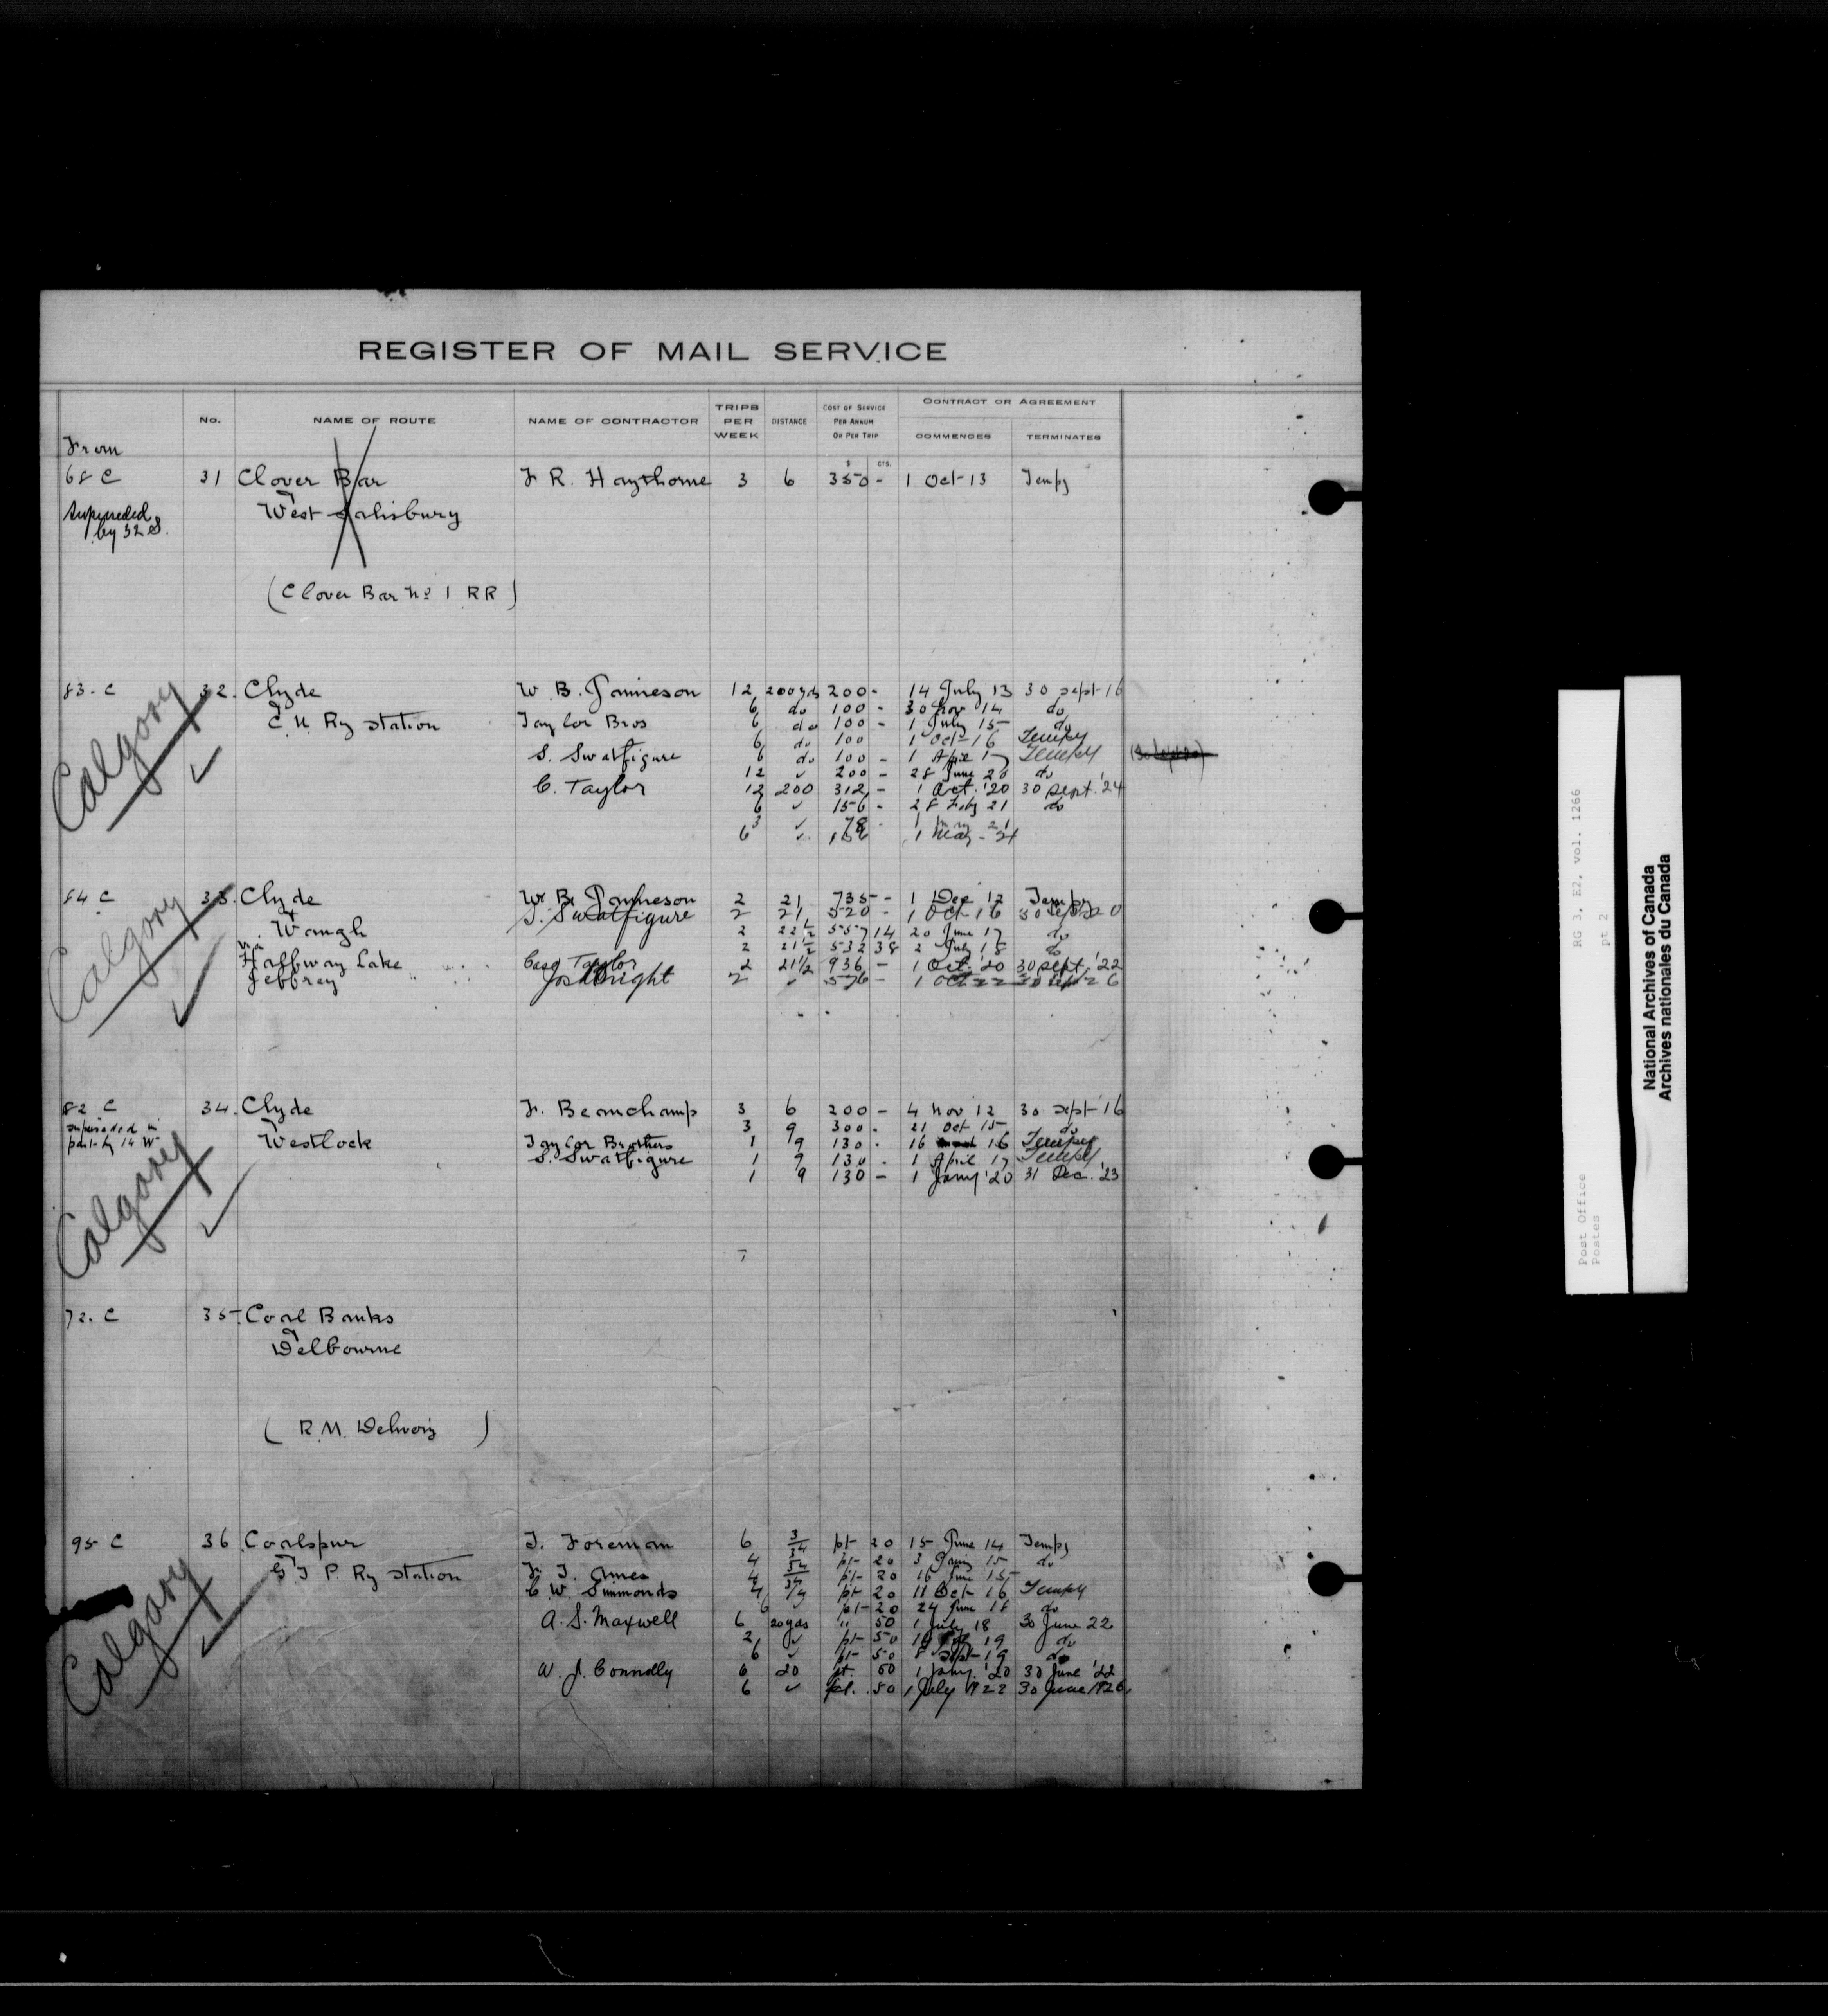 REGISTER OF MAIL SERVICE
From No. NAME OF ROUTE NAME OF CONTRACTOR TRIPS PER WEEK DISTANCE COST OF SERVICE PER ANNUM OR PER TRIP CONTRACT OR AGREEMENT
COMMENCES TERMINATES
$ CTS.
68 C 31 Clover Bar F R. Haythorne 3 6 350 - 1 Oct-13 Tempy
Superseded West Salisbury
by 32 S.
(Clover Bar No 1 RR)
83. C 32. Clyde W. B. Jamieson 12 200 yds 200 - 14 July 13 30 Sept-16
6 do 100 - 30 Nov 14 do
C. N. Ry station Taylor Bros 6 do 100 - 1 July 15 do
6 do 100 1 Oct-16 Tempy
S. Swatfigure 6 do 100 - 1 April 17 Tempy
12 ✓ 200 - 28 June 20 do
C. Taylor 12 200 312 - 1 Oct. '20 30 Sept. '24
6 ✓ 156 - 28 Feby 21 do
3 ✓ 78 - 1 21
6 ✓ 156 1 May - 21
Calgary
84 C 33. Clyde W. B. Jamieson 2 21 735 - 1 Dec 12 Tempy
S. Swatfigure 2 21 520 - 1 Oct-16 30 Sept 20
Waugh 2 22½ 557 14 20 June 17 do
via 2 21½ 532 38 2 July 18 do
Halfway Lake Taylor 2 21½ 936 - 1 Oct. '20 30 Sept. '22
Jeffrey Jos Wright 2 ✓ 576 - 1 Oct 22 30 Sept 26
Calgary
82 C 34. Clyde F. Beauchamp 3 6 200 - 4 Nov 12 30 Sept-16
superseded in 3 9 300 - 21 Oct 15 do
part by 14 W Westlock Taylor Brothers 1 9 130 - 16 16 Tempy
S. Swatfigure 1 9 130 - 1 April 17 Tempy
1 9 130 - 1 Jany '20 31 Dec. '23
Calgary
72. C 35. Coal Banks
Delbourne
(R. M. Delivery)
95 C 36 Coalspur T. Foreman 6 3/4 pt- 20 15 June 14 Tempy
4 3/4 pt- 20 3 Jany 15 do
G T P. Ry station T. Ames 4 3/4 pt- 20 16 June 15
C. W. Simmonds 4 3/4 pt 20 11 Oct 16 Tempy
6 ✓ pt- 20 24 June 18 do
A. S. Maxwell 6 20 yds " 50 1 July 18 30 June 22
2 ✓ pt- 50 19 do
6 ✓ pt- 50 8 Sept-19 do
W. J. Connolly 6 20 pt. 50 1 Jany. '20 30 June '22
6 ✓ pt. 50 1 July 1922 30 June 1926
Calgary
Post Office RG 3, E2, vol. 1266
Postes pt 2
National Archives of Canada
Archives nationales du Canada